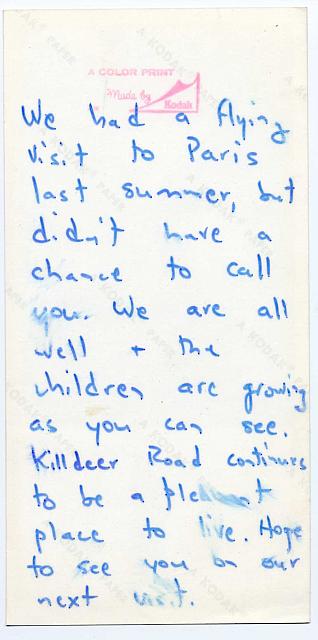 A COLOR PRINT
Made by
Kodak
We had a flying
visit to Paris
last summer, but
didn't have a
chance to call
you. We are all
well + the
children are growing
as you can see.
Killdeer Road continues
to be a pleasant
place to live. Hope
to see you on our
next visit.